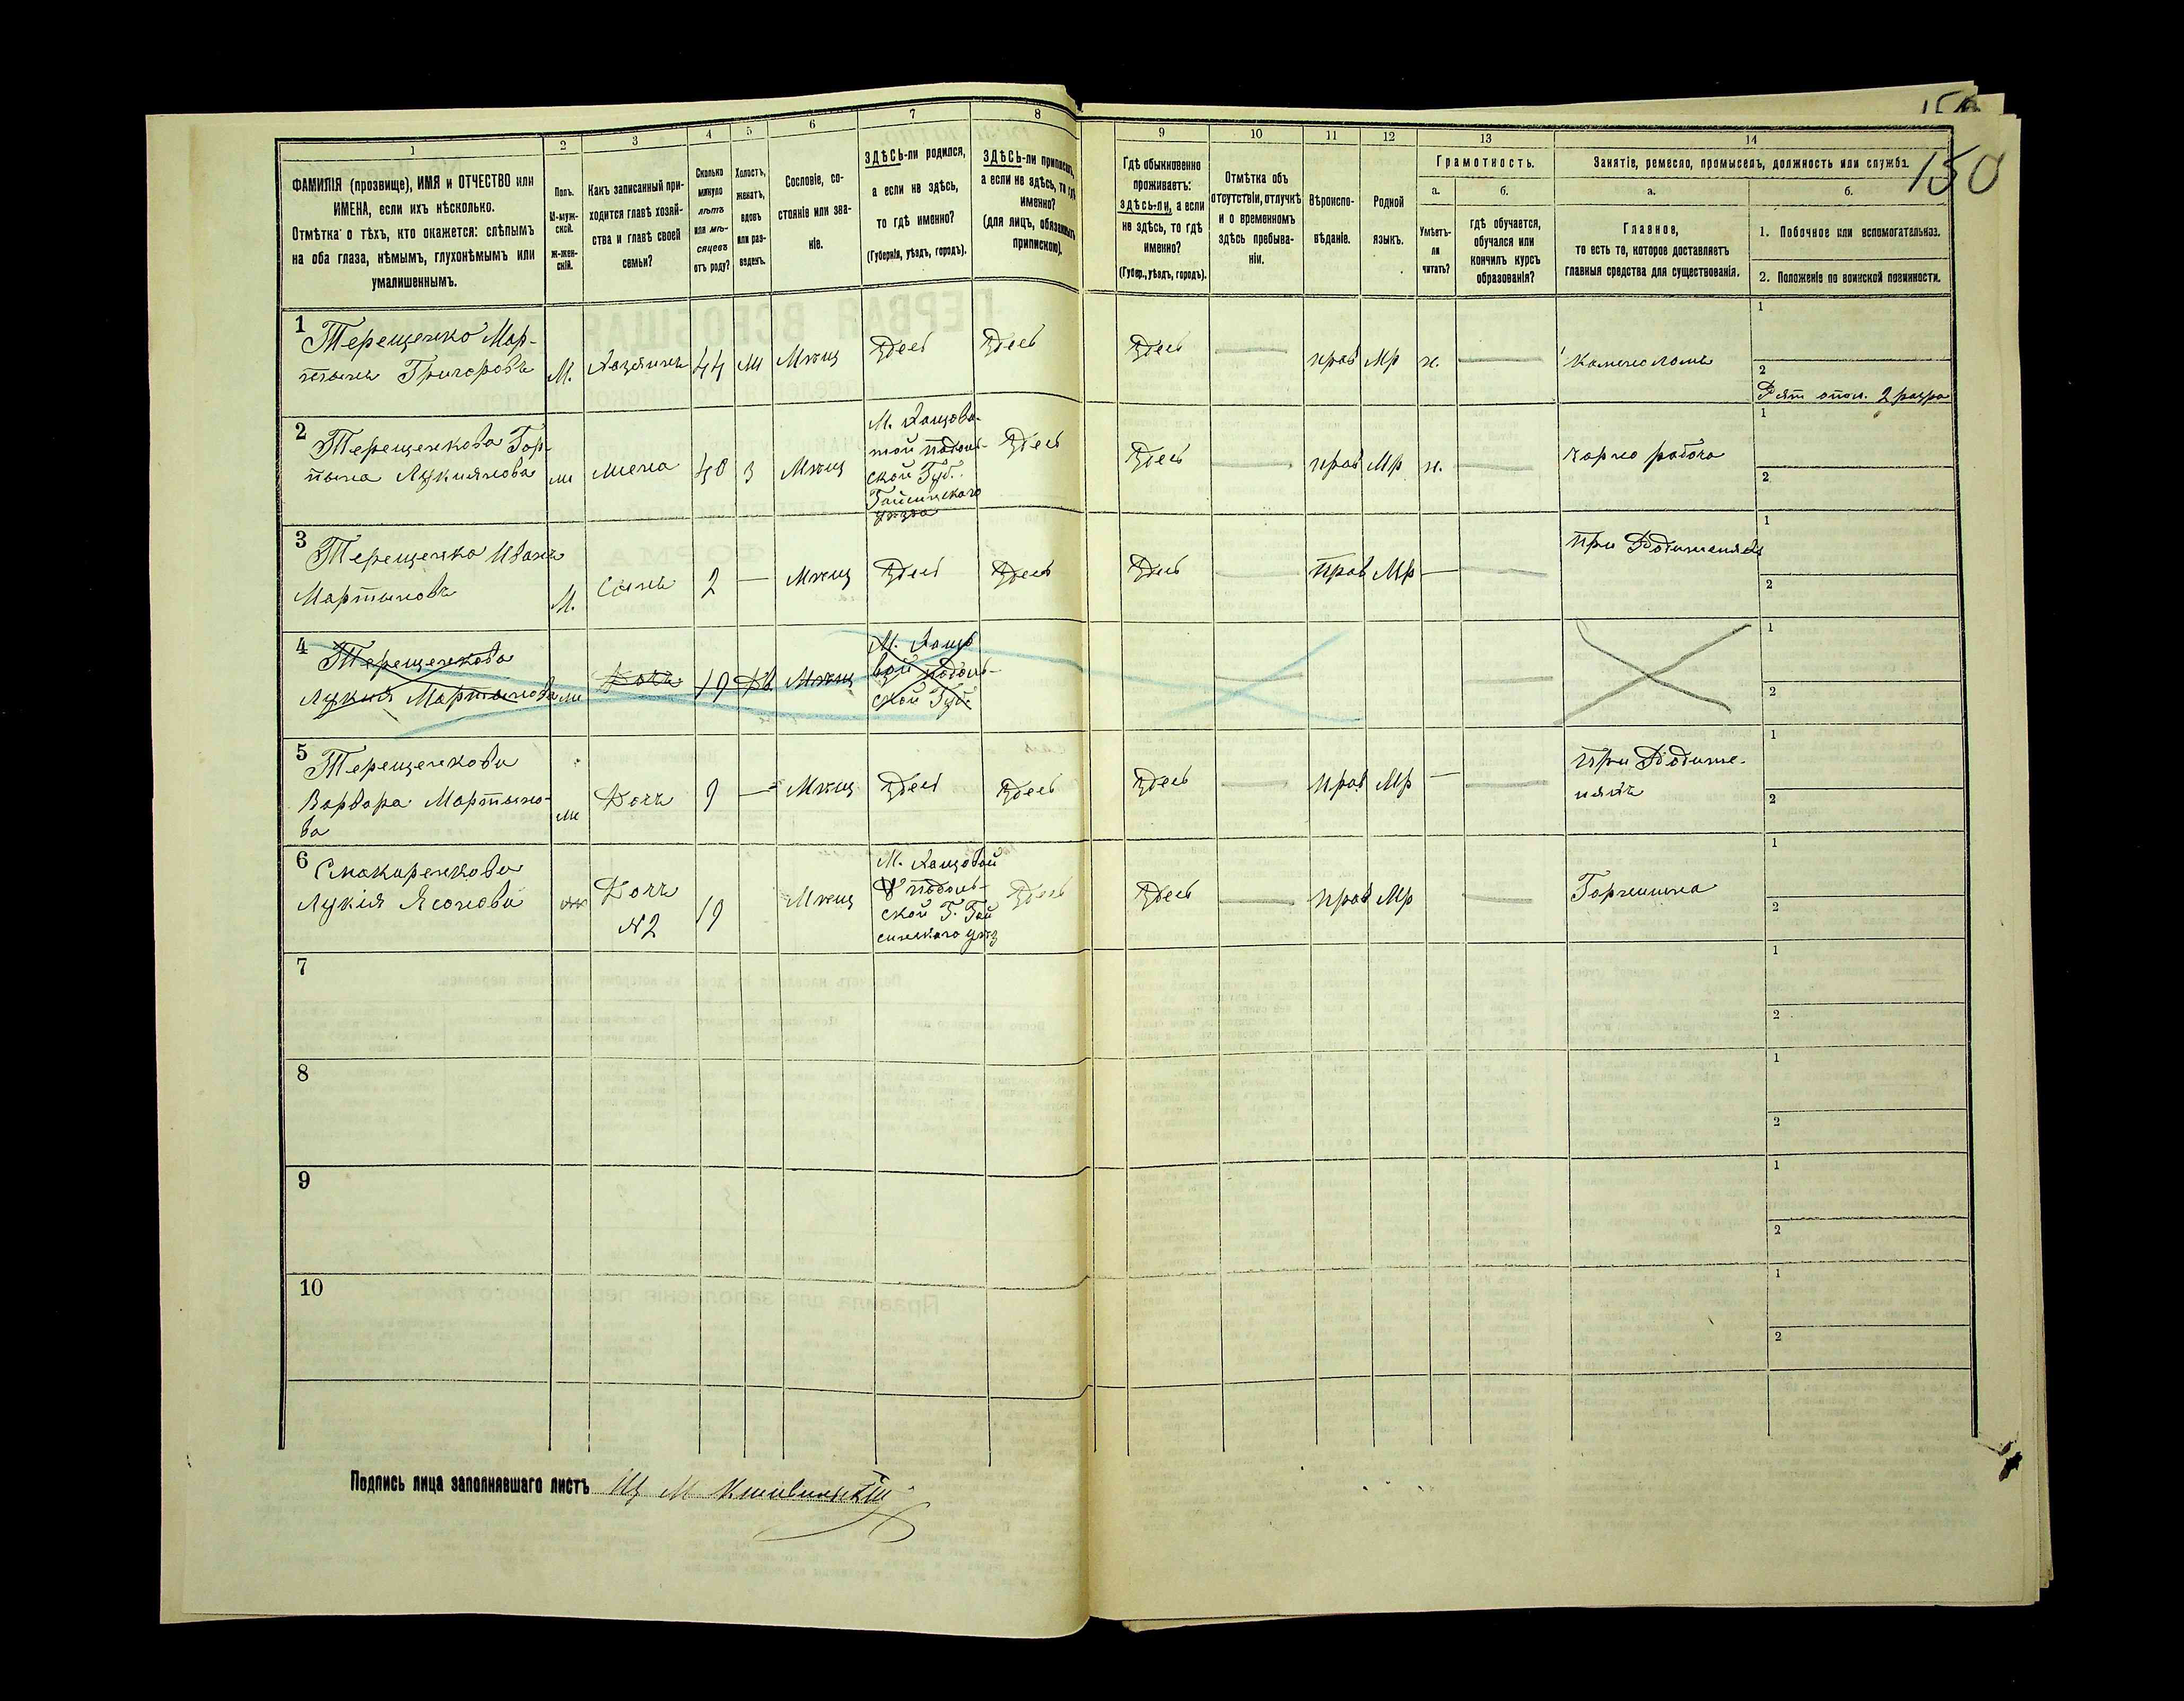 150
1
2
3
4
5
6
7
8
9
10
11
12
13
14
ФАМИЛІЯ (прозвище), ИМЯ и ОТЧЕСТВО или
ИМЕНА, если ихъ нѣсколько.
Отмѣтка о тѣхъ, кто окажется: слѣпымъ
на оба глаза, нѣмымъ, глухонѣмымъ или
умалишеннымъ.
Полъ.
М-муж-
ской.
ж-жен-
скій.
Какъ записанный при-
ходится главѣ хозяй-
ства и главѣ своей
семьи?
Сколько
минуло
лѣтъ
или мѣ-
сяцевъ
отъ роду?
Холостъ,
женатъ,
вдовъ
или раз-
веденъ.
Сословіе, со-
стояніе или зва-
ніе.
ЗДѢСЬ-ли родился,
а если не здѣсь,
то гдѣ именно?
(Губернія, уѣздъ, городъ).
ЗДѢСЬ-ли приписанъ,
а если не здѣсь, то гдѣ
именно?
(для лицъ, обязанныхъ
припискою).
Гдѣ обыкновенно
проживаетъ:
здѣсь-ли, а если
не здѣсь, то гдѣ
именно?
(Губер., уѣздъ, городъ).
Отмѣтка объ
отсутствіи, отлучкѣ
и о временномъ
здѣсь пребыва-
ніи.
Вѣроиспо-
вѣданіе.
Родной
языкъ.
Грамотность.
а.
Умѣетъ-
ли
читать?
б.
гдѣ обучается,
обучался или
кончилъ курсъ
образованія?
Занятіе, ремесло, промыселъ, должность или служба.
а.
Главное,
то есть то, которое доставляетъ
главныя средства для существованія.
б.
1. Побочное или вспомогательное.
2. Положеніе по воинской повинности.
1 Терещенко Мар-
тынъ Григоровъ
М. Хазяинъ 44 ж Мѣщ Здесь Здесь Здесь прав Мр н. Каменоломъ
1
2
Рат опол. 2 разра
2 Терещенкова Гор-
пына Лукиянова
ж жена 40 з Мѣщ
М. Хащова-
той подоль-
ской Губ.
Гайсинскаго
уѣзда
Здесь Здесь прав Мр н. Чорно робоча
1
2
3 Терещенко Иванъ
Мартыновъ
М. Сынъ 2 — Мѣщ Здесь Здесь Здесь прав Мр — При Родителяхъ
1
2
4 Терещенкова
Лукия Мартынова
ж Дочь 19 Дв. Мѣщ
М. Хащо
вой подоль-
ской Губ.
1
2
5 Терещенкова
Варвара Мартыно-
ва
ж Дочь 9 — Мѣщ Здесь Здесь Здесь прав Мр — При Родите-
ляхъ
1
2
6 Смакаренкова
Лукія Ясонова
ж Дочь
№2
19 Мѣщ
М. Хащовой
подоль-
ской Г. Гай
синскаго уѣз
Здесь Здесь прав Мр Горнишна
1
2
7
1
2
8
1
2
9
1
2
10
1
2
Подпись лица заполнявшаго листъ